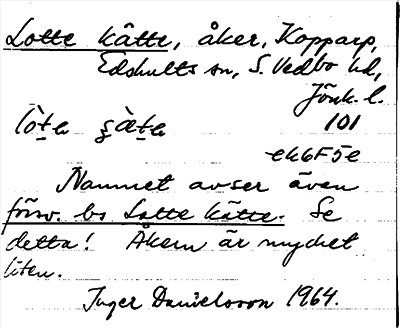 Lotte kätte, åker, Kopparp,
Edshults sn, S. Vedbo hd,
Jönk. l.
101
ek6F5e
Namnet avser även
försv. bs Lotte kätte. Se
detta! Åkern är mycket
liten.
Inger Danielsson 1964.